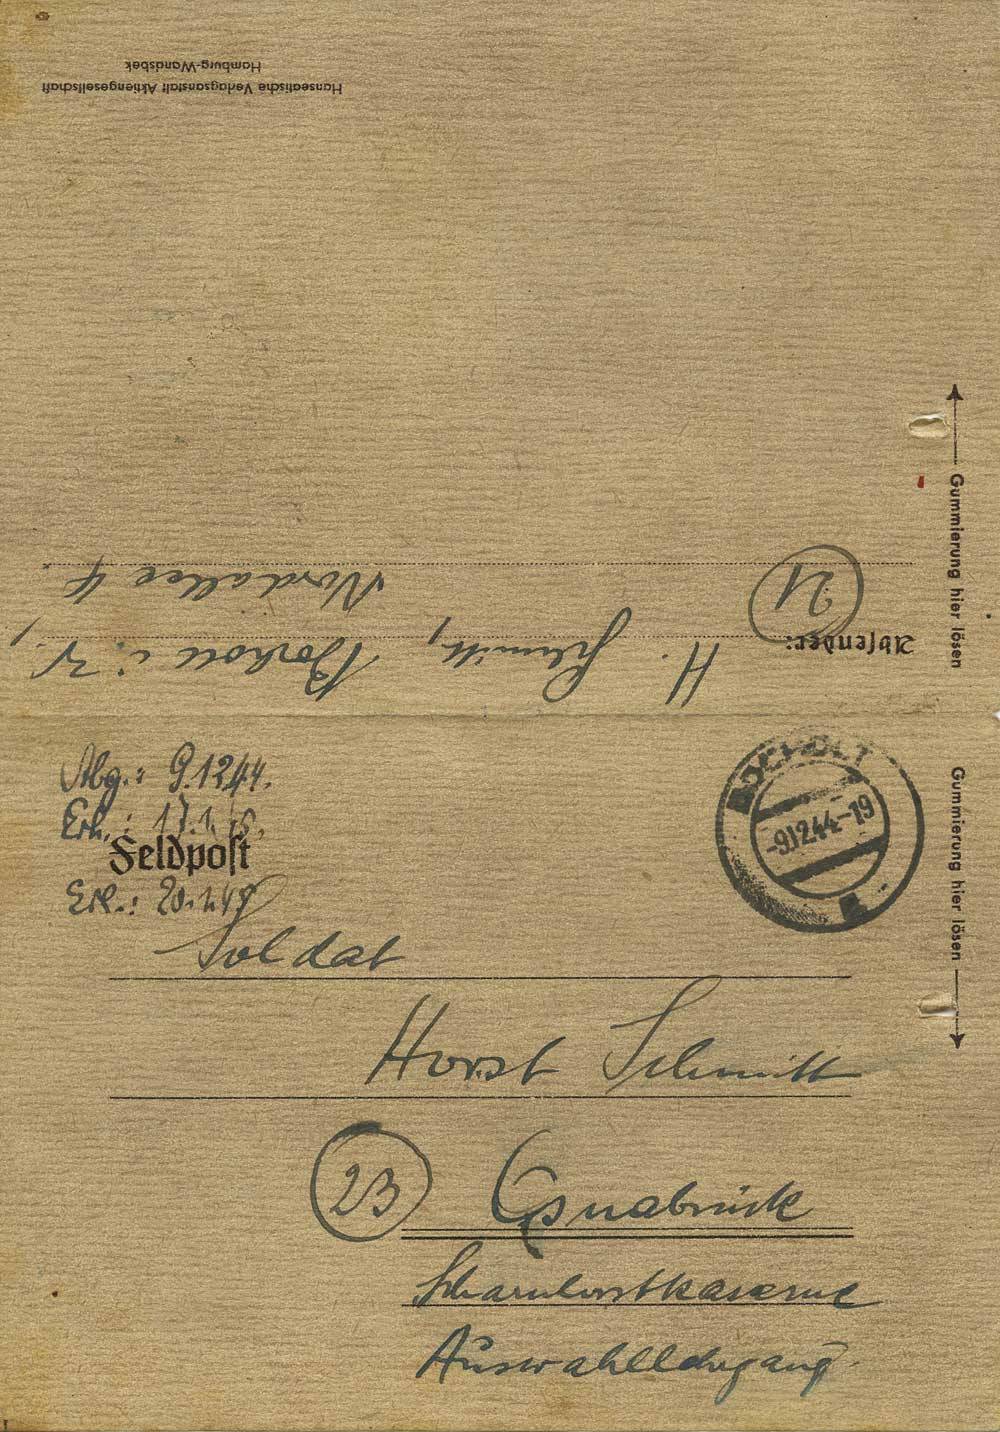 Hanseatische Verlagsanstalt Aktiengesellschaft
Hamburg-Wandsbek
Absender:
H. Schmitt, Bocholt i. W.,
21
Nordallee 4
Gummierung hier lösen
Gummierung hier lösen
Abg.: 9.12.44.
Erh.: 17.1.45.
Feldpost
Erl.: 20.1.45
BOCHOLT
-9.12.44-19
Soldat
Horst Schmitt
23
Osnabrück
Scharnhorstkaserne
Auswahllehrgang